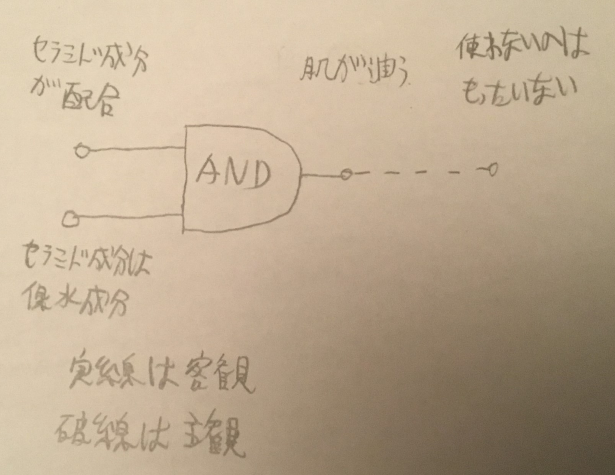 セラミド成分
が配合
肌が潤う
使わないのは
もったいない
AND
セラミド成分は
保水成分
実線は客観
破線は主観